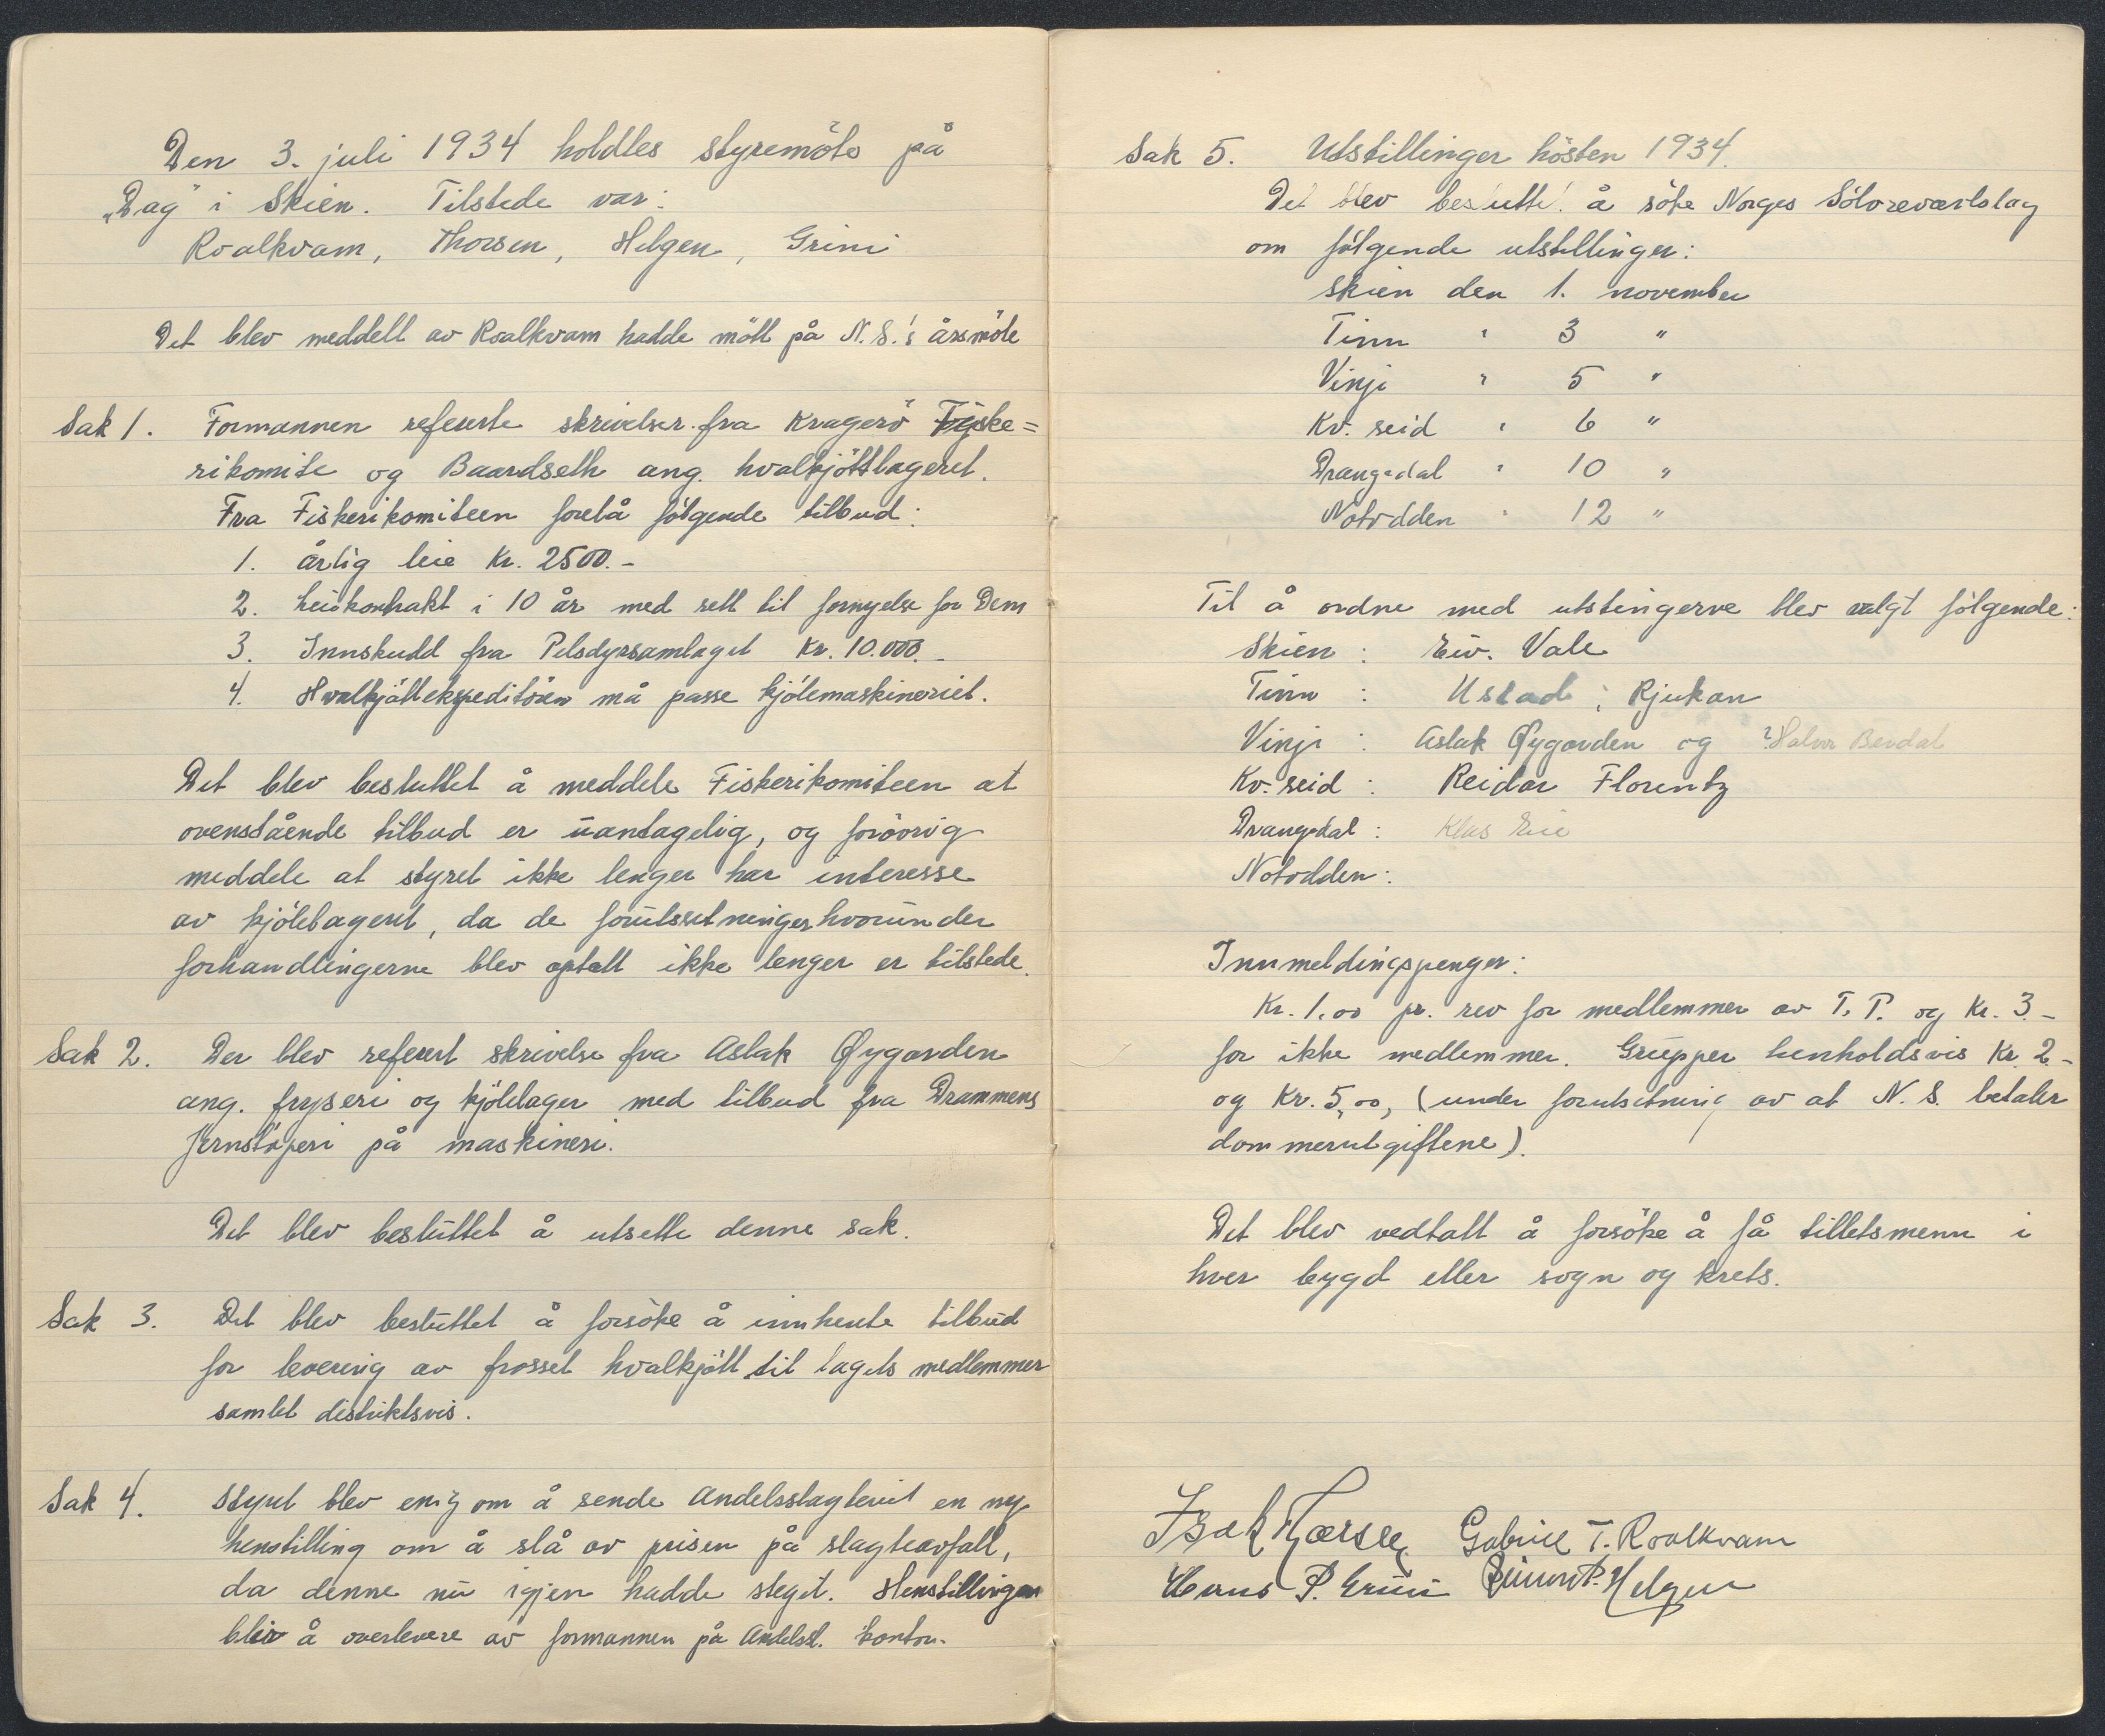 Den 3. juli 1934 holdtes styremöte på
„Dag" i Skien. Tilstede var:
Roalkvam, Thorsen, Helgen, Grini
Det blev meddelt av Roalkvam hadde mött på N.S.'s årsmöte
Sak 1. Formannen refererte skrivelser fra Kragerö Fiske=
rikomite og Baardseth ang. hvalkjöttlageret.
Fra Fiskerikomiteen forelå fölgende tilbud:
1. årlig leie Kr. 2500.-
2. Leiekontrakt i 10 år med rett til fornyelse for Dem
3. Innskudd fra Pelsdyrsamlaget Kr. 10.000.-
4. Hvalkjöttekspeditören må passe kjölemaskineriet.
Det blev besluttet å meddele Fiskerikomiteen at
ovenstående tilbud er uantagelig, og forövrig
meddele at styret ikke lenger har interesse
av kjölelageret, da de forutsetninger hvorunder
forhandlingerne blev optatt ikke lenger er tilstede.
Sak 2. Der blev referert skrivelse fra Aslak Øygarden
ang. fryseri og kjölelager med tilbud fra Drammens
Jernstöperi på maskineri.
Det blev besluttet å utsette denne sak.
Sak 3. Det blev besluttet å forsöke å innhente tilbud
for levering av frosset hvalkjött til lagets medlemmer
samlet distriktsvis.
Sak 4. Styret blev enig om å sende Andelsslagteriet en ny
henstilling om å slå av prisen på slagteavfall,
da denne nu igjen hadde steget. Henstillingen
blir å overlevere av formannen på Andelssl. kontor.
Sak 5. Utstillinger hösten 1934.
Det blev besluttet å söke Norges Sölvreveavlslag
om fölgende utstillinger:
Skien den 1. november
Tinn " 3 "
Vinje " 5 "
Kv. seid " 6 "
Drangedal " 10 "
Notodden " 12 "
Til å ordne med utstingerne blev valgt fölgende:
Skien: Eiv. Vale
Tinn: Ustad, Rjukan
Vinje: Aslak Øygarden og ? Halvor Berdal
Kv. seid: Reidar Florentz
Drangedal: Klas Eie
Notodden:
Innmeldingspenger:
Kr. 1,00 pr. rev for medlemmer av T.P. og Kr. 3.-
for ikke medlemmer. Grupper henholdsvis Kr. 2-
og Kr. 5,00, (under forutsetning av at N.S. betaler
dommerutgiftene).
Det blev vedtatt å forsöke å få tilletsmenn i
hver bygd eller sogn og krets.
Gabriel T. Roalkvam
Hans P. Grini Simon P. Helgen